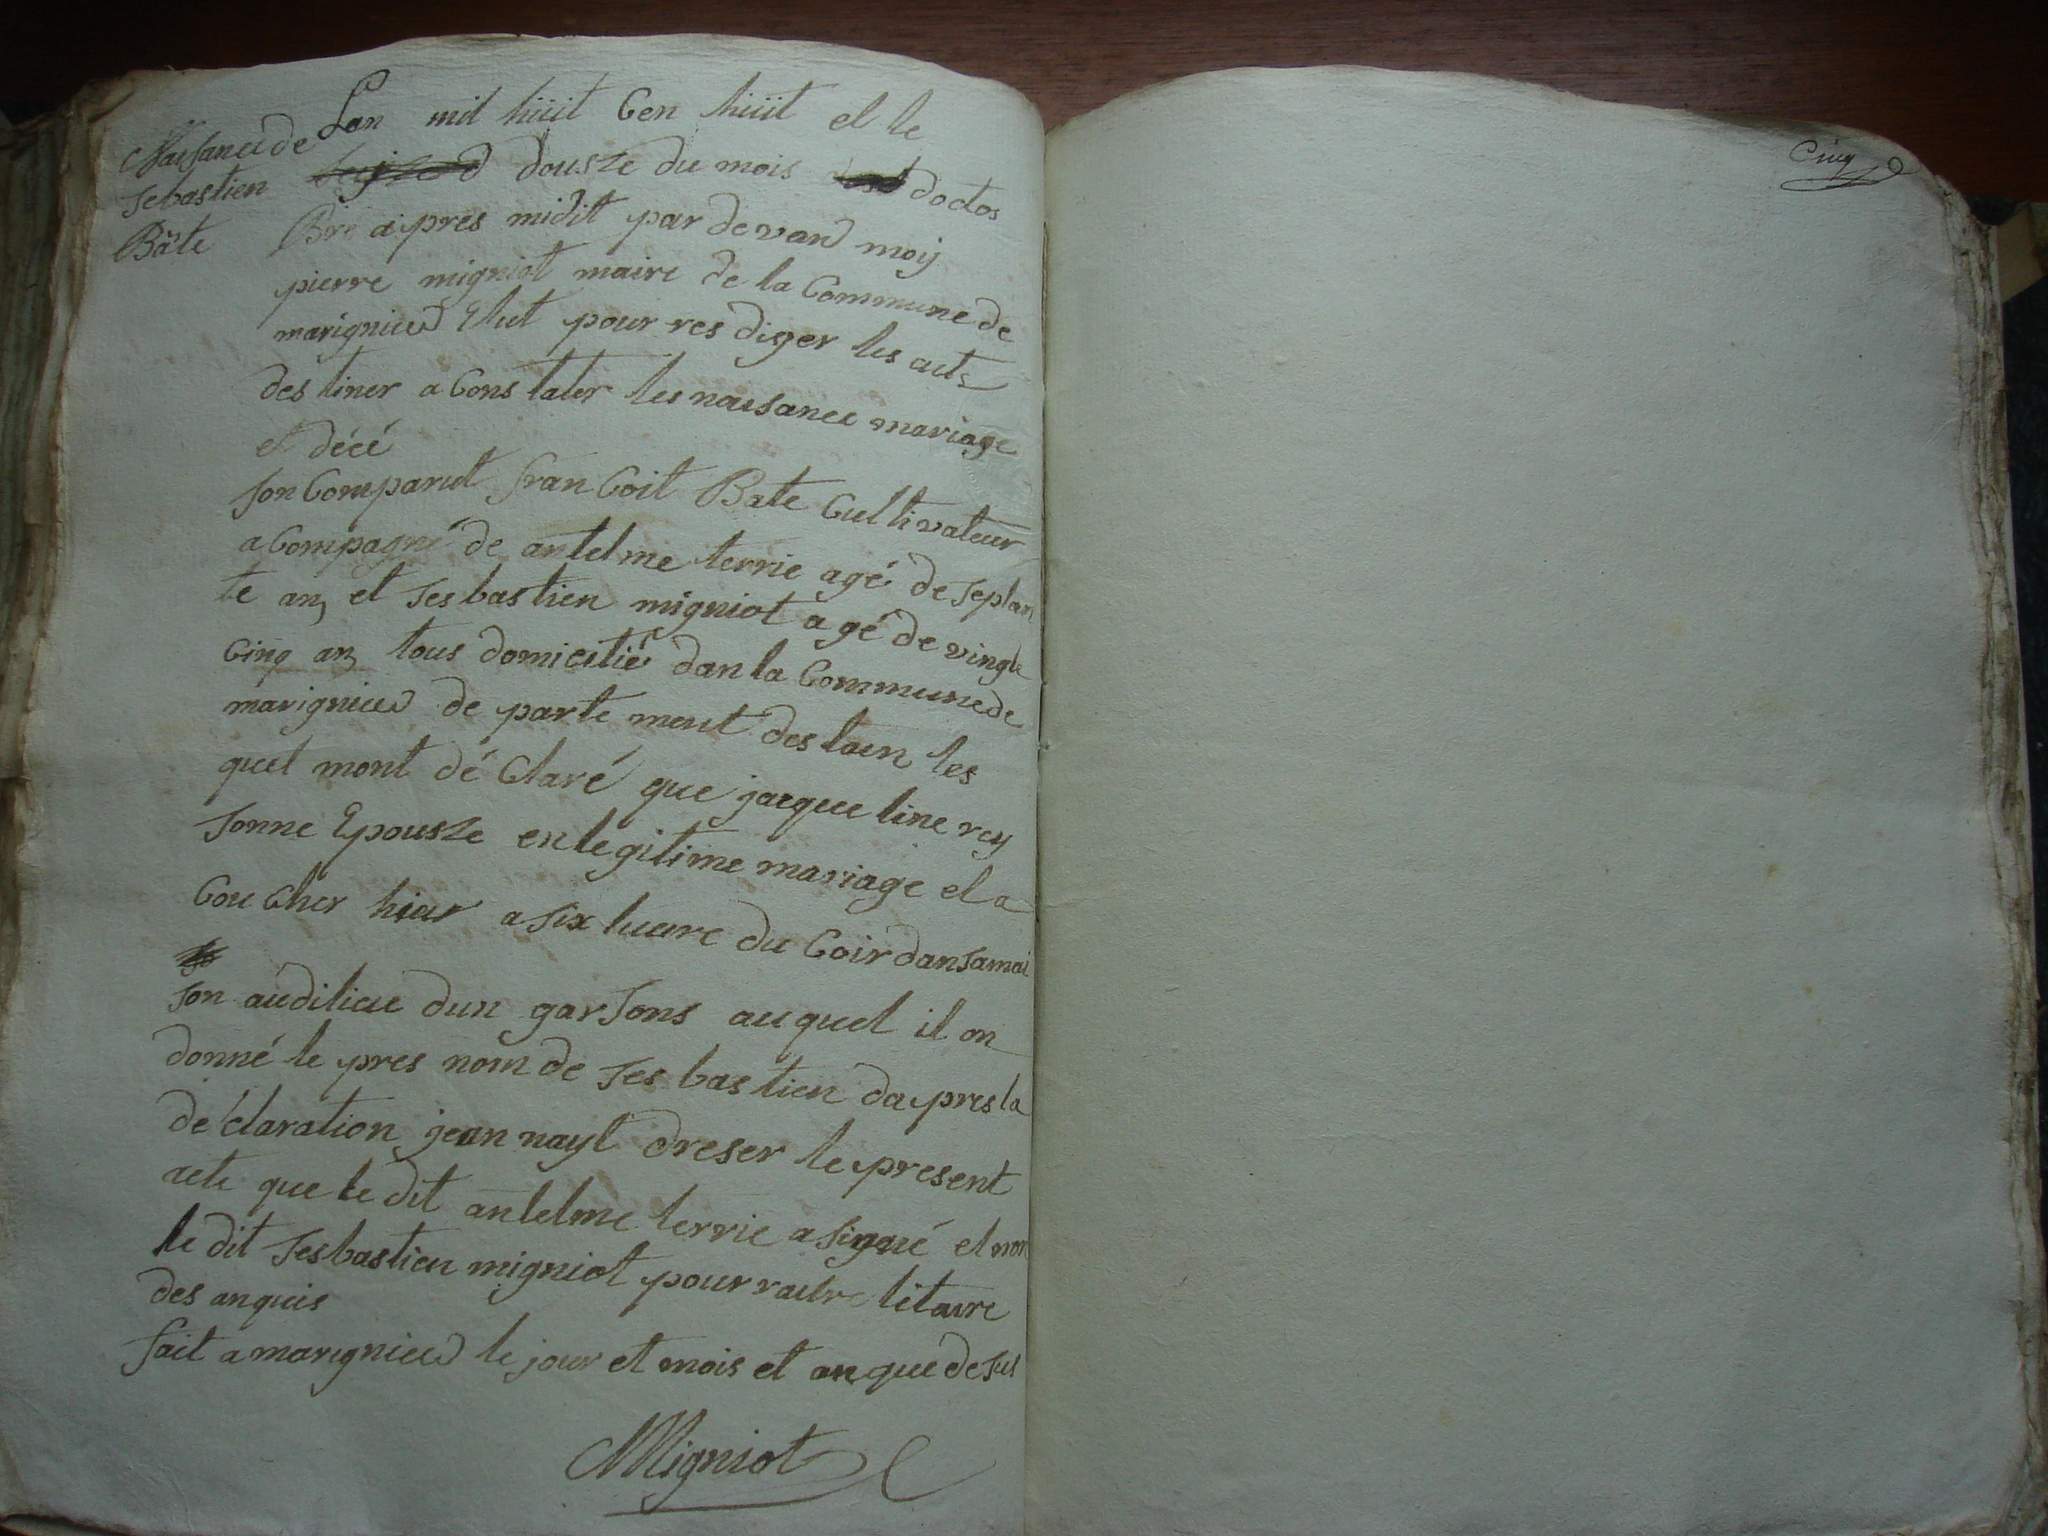 Naisance de
Sebastien
Bâte
Lan mil huit Cen huit et le
dousze du mois doctos
Bre aprés midit par devand moy
pierre migniot maire de la Commune de
marignieu Elut pour res diger les acte
des tiner a Cons tater les naisance mariage
et décé
son Comparut fran Coit Bate Cultivateur
a Compagné de antelme terrie agé de septan
te an et Sesbastien migniot agé de vingt
Cinq an tous domicilié dan la Commune de
marignieu de parte ment des lain les
quel mont dé Claré que jacque line rey
sonne Epousze en legitime mariage et a
Cou Cher hier a six heure du Coir dan sa mai
son audilieu dun garsons au quel il on
donné le pres nom de Ses bastien da pres la
dé claration jean nayt dreser le present
acte que le dit antelme terrie a signé et non
le dit Sesbastien migniot pour naitre litaire
des anquis
fait a marignieu le jour et mois et an que desus
Migniot
Cinq